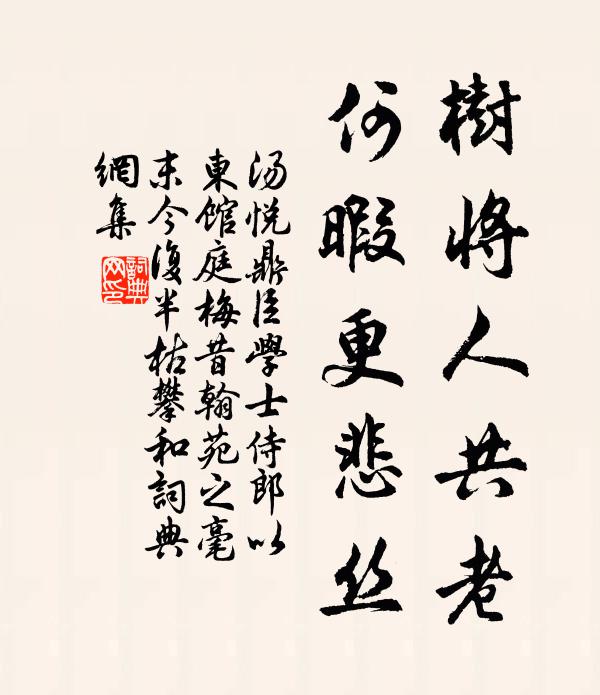 樹將人共老
何暇更悲丝
湯悅鼎臣學士侍郎以
東館庭梅昔翰苑之毫
末今復半枯攀和詞典
網集
詞典網印